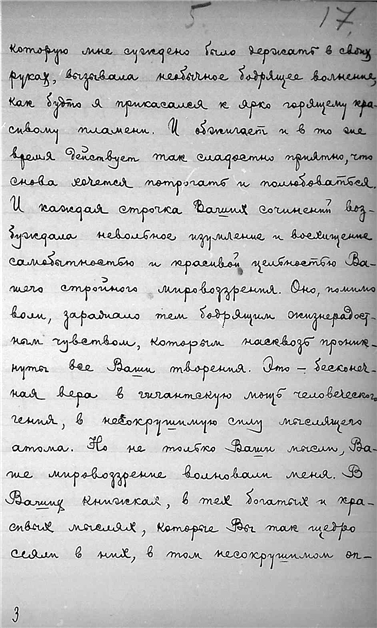 5 17.
которую мне суждено было держать в своих
руках, вызывала необычное бодрящее волнение,
как будто я прикасался к ярко горящему кра-
сивому пламени. И обжигает и в то же
время действует так сладостно приятно, что
снова хочется потрогать и полюбоваться.
И каждая строчка Ваших сочинений воз-
буждала невольное изумление и восхищение
самобытностью и красивой цельностью Ва-
шего стройного мировоззрения. Оно, помимо
воли, заражало тем бодрящим жизнерадост-
ным чувством, которым насквозь проник-
нуты все Ваши творения. Это – бесконеч-
ная вера в гигантскую мощь человеческого
гения, в несокрушимую силу мыслящего
атома. Но не только Ваши мысли, Ва-
ше мировоззрение волновали меня. В
Ваших книжках, в тех богатых и кра-
сивых мыслях, которые Вы так щедро
сеяли в них, в том несокрушимом оп-
3